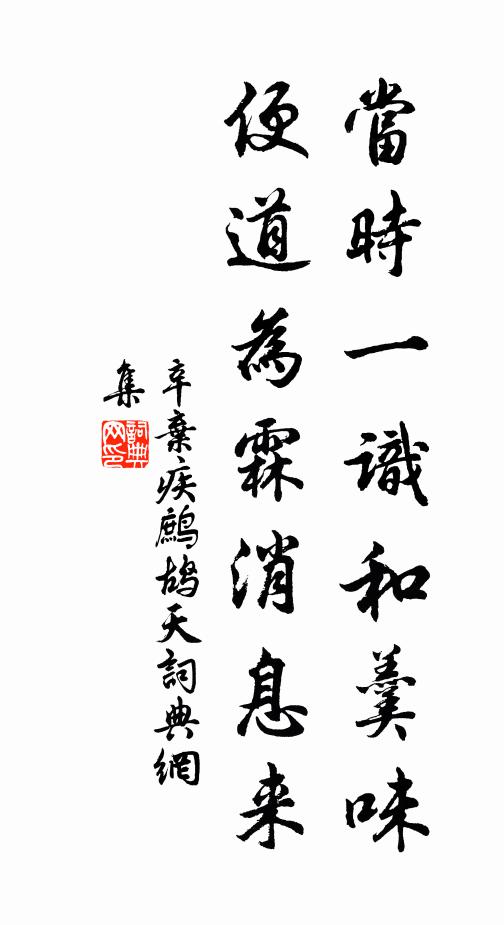 當時一識和羹味
便道為霖消息来
辛棄疾鷓鴣天詞典網
集
詞典網印